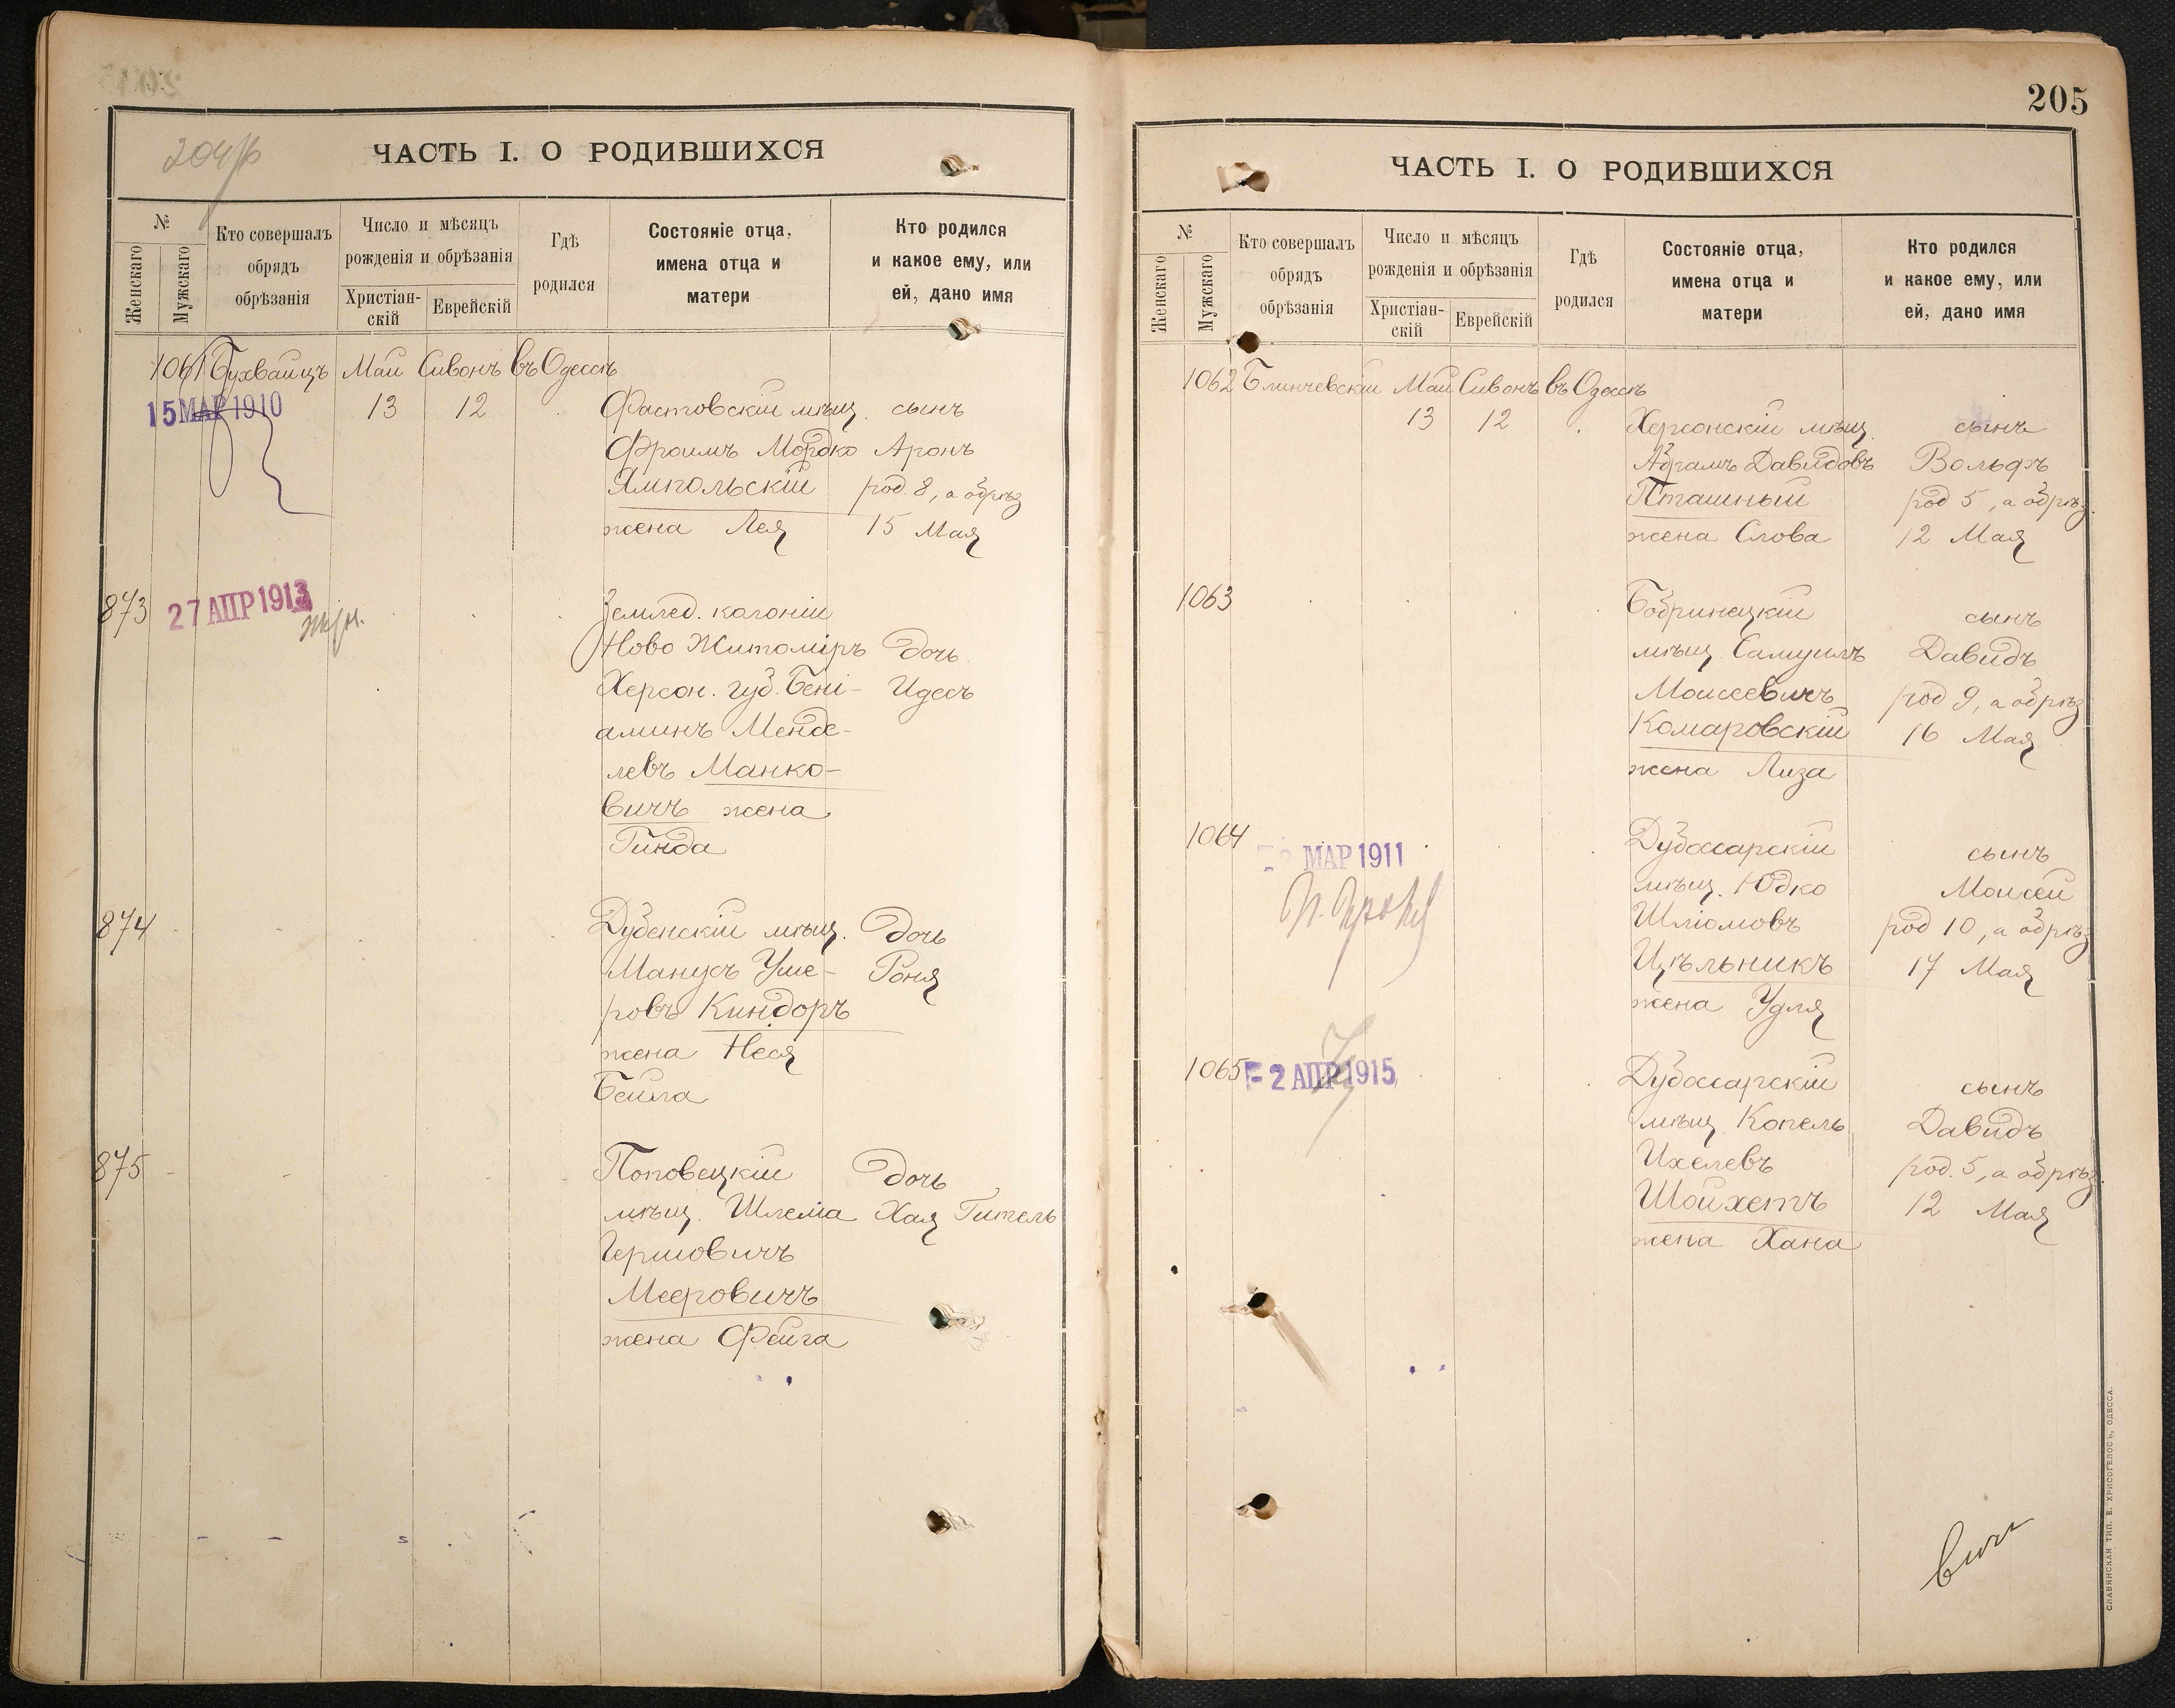 204/б
ЧАСТЬ I. О РОДИВШИХСЯ
№
Женскаго
Мужскаго
Кто совершалъ
обрядъ
обрѣзанія
Число и мѣсяцъ
рожденія и обрѣзанія
Христіан-
скій
Еврейскій
Гдѣ
родился
Состояніе отца,
имена отца и
матери
Кто родился
и какое ему, или
ей, дано имя
1061 Бухвайцъ Май Сивонъ въ Одессѣ
15 МАР 1910 13 12 Фастовскій мѣщ. сынъ
Фроимъ Мордко Аронъ
Ямпольскій род. 8, а обрѣз
жена Лея 15 Мая
873 27 АПР 1913 Землед. колоніи
Ново Житоміръ дочь
Херсон. губ. Бені- Идесъ
аминъ Менде-
левъ Манко-
вичъ жена
Гинда
874 Дубенскій мѣщ. дочь
Манусъ Уше- Роня
ровъ Киндоръ
жена Неся
Бейла
875 Поповецкій дочь
мѣщ. Шлема Хая Гитель
Гершовичъ
Мееровичъ
жена Фейга
205
ЧАСТЬ I. О РОДИВШИХСЯ
№
Женскаго
Мужскаго
Кто совершалъ
обрядъ
обрѣзанія
Число и мѣсяцъ
рожденія и обрѣзанія
Христіан-
скій
Еврейскій
Гдѣ
родился
Состояніе отца,
имена отца и
матери
Кто родился
и какое ему, или
ей, дано имя
1062 Блинчевскій Май Сивонъ въ Одессѣ
13 12 Херсонскій мѣщ. сынъ
Абрамъ Давидовъ Вольфъ
Пташный род 5, а обрѣз.
жена Слова 12 Мая
1063 Бобринецкій сынъ
мѣщ. Самуилъ Давидъ
Моисеевичъ род 9, а обрѣз
Комаровскій 16 Мая
жена Лиза
1064 МАР 1911 Дубоссарскій сынъ
мѣщ. Юдко Моисей
Шліомовъ род 10, а обрѣз
Цѣльникъ 17 Мая
жена Удля
1065 - 2 АПР 1915 Дубоссарскій сынъ
мѣщ. Копель Давидъ
Ихелевъ род. 5, а обрѣз.
Шойхетъ 12 Мая
жена Хана
СЛАВЯНСКАЯ ТИП. Е. ХРИСОГЕЛОСЪ, ОДЕССА.